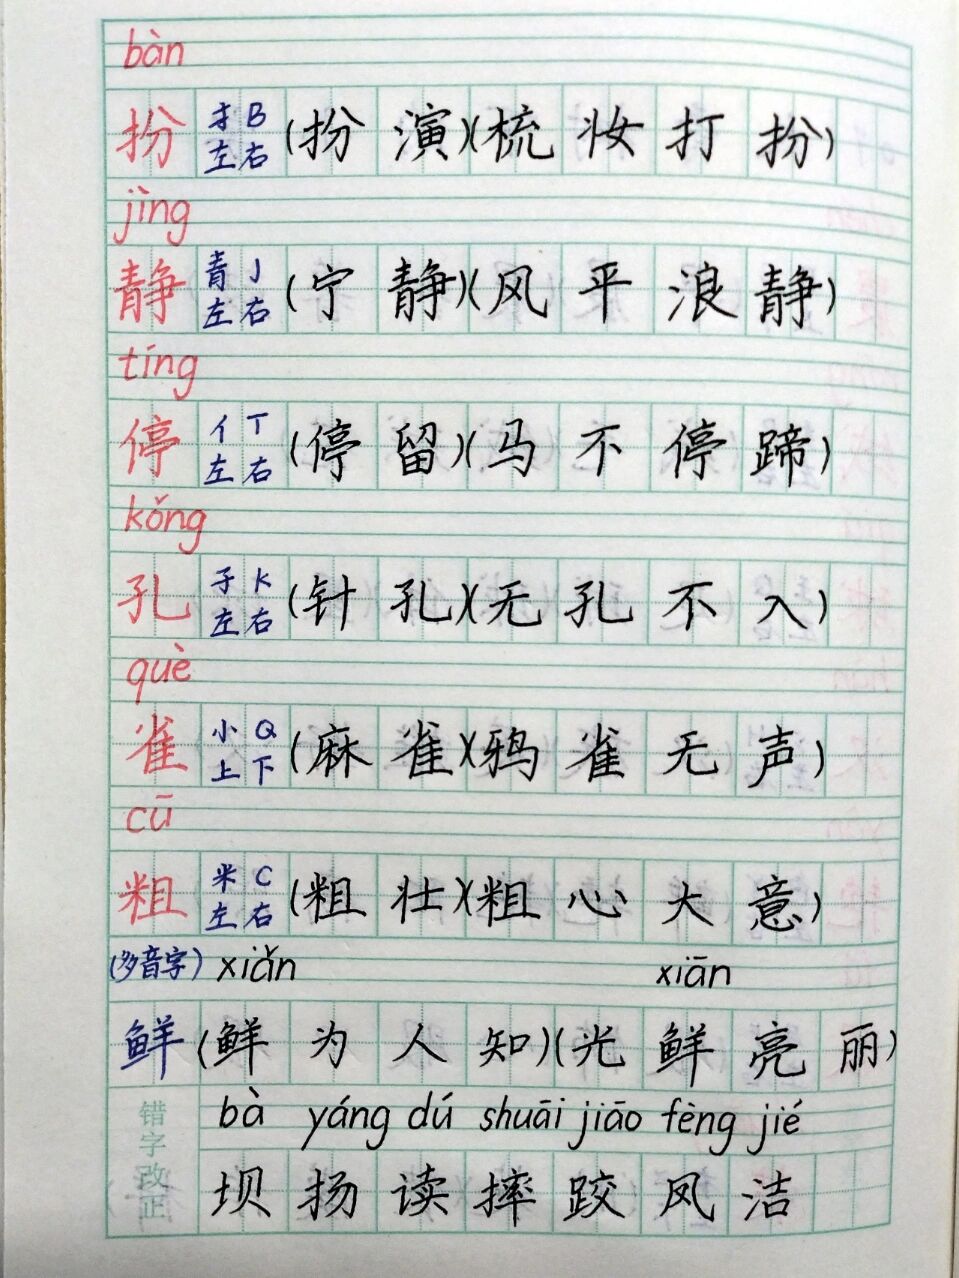 bàn
扮 扌 B 左 右 (扮 演)(梳 妆 打 扮)
jìng
静 青 J 左 右 (宁 静)(风 平 浪 静)
tíng
停 亻 T 左 右 (停 留)(马 不 停 蹄)
kǒng
孔 子 K 左 右 (针 孔)(无 孔 不 入)
què
雀 小 Q 上 下 (麻 雀)(鸦 雀 无 声)
cū
粗 米 C 左 右 (粗 壮)(粗 心 大 意)
(多音字) xiǎn xiān
鲜 (鲜 为 人 知)(光 鲜 亮 丽)
bà yáng dú shuāi jiāo fèng jié
错字改正 坝 扬 读 摔 跤 凤 洁